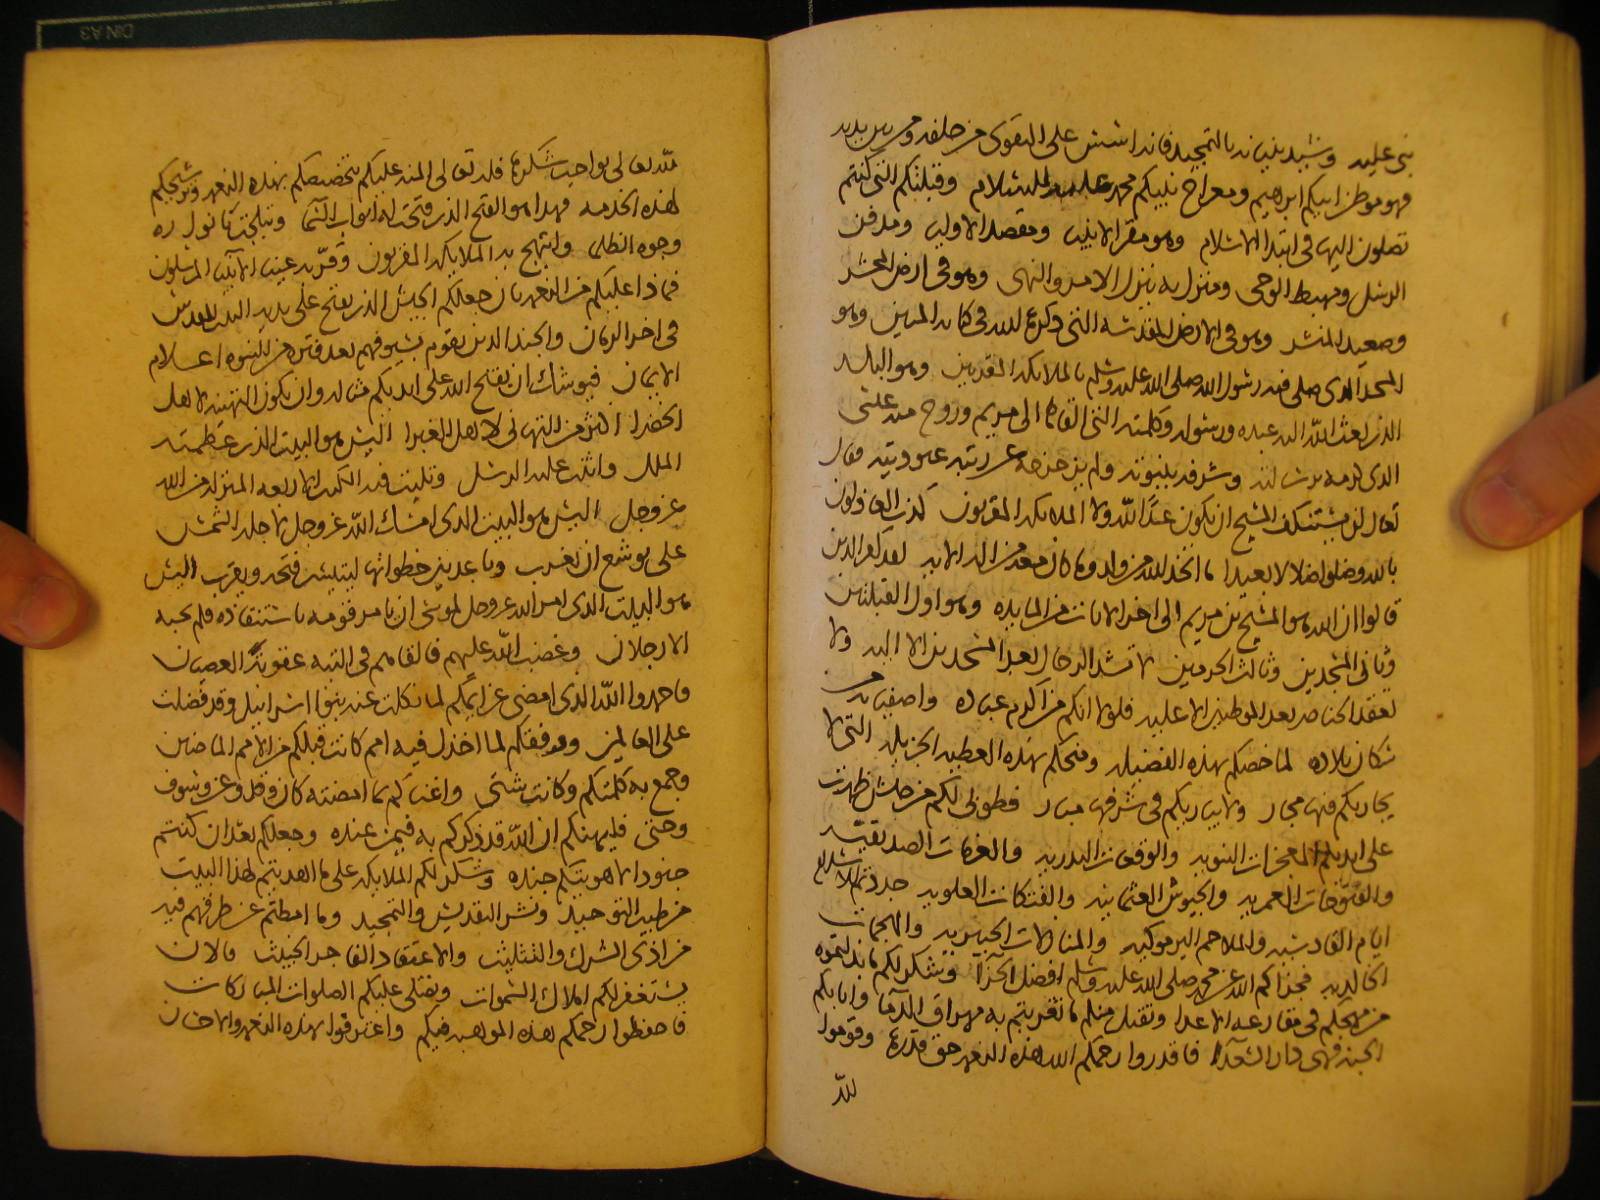 بنى عليه وشيد بنيانه بالتمجيد فانه اسس على التقوى من خلفه ومن بين يديه
فهو موطن ابيكم ابرهيم ومعراج نبيكم محمد عليه السلام وقبلتكم التى كنتم
تصلون اليها فى ابتدا الاسلام وهو مقر الانبيا ومقصد الاوليا ومدفن
الرسل ومهبط الوحى ومنزل به ينزل الامر والنهى وهو فى ارض المحشر
وصعيد المنشر وهو فى الارض المقدسه التى ذكرها الله فى كتابه المبين وهو
المسجد الذى صلى فيه رسول الله صلى الله عليه وسلم بالملايكه المقربين وهو البلد
الذى بعث الله اليه عبده ورسوله وكلمته التى القاها الى مريم وروح منه عيسى
الذى كرمه برسالته وشرفه بنبوته ولم يزحزحه عن رتبه عبوديته فقال
تعالى لن يستنكف المسيح ان يكون عبدا لله ولا الملايكه المقربون كذب العادلون
بالله وضلوا ضلالا بعيدا ما اتخذ الله من ولد وما كان معه من اله الايه لقد كفر الذين
قالوا ان الله هو المسيح بن مريم الى اخر الايات من المايده وهو اول القبلتين
وثانى المسجدين وثالث الحرمين لا تشد الرحال بعد المسجدين الا اليه ولا
تعقد الخناصر بعد الموطنين الا عليه فلولا انكم من اكرم عباده واصفيائه من
سكان بلاده لما خصكم بهذه الفضيله ومنحكم بهذه العطيه الجزيله التى لا
يجاريكم فيها مجار ولا يباريكم فى شرفها مبار فطوبى لكم من جيش ظهرت
على ايديكم المعجزات النبويه والوقعات البدريه والعزمات الصديقيه
والفتوحات العمريه والجيوش العثمانيه والفتكات العلويه جددتم للاسلام
ايام القادسيه والملاحم اليرموكيه والمنازلات الخيبريه والهجمات
الخالديه فجزاكم الله عن محمد صلى الله عليه وسلم افضل الجزآ وشكر لكم ما بذلتموه
من مهجكم فى مقارعه الاعدا وتقبل منكم ما تقربتم به من مهراق الدما واثابكم
الجنه فهى دار السعدآ فاقدروا رحمكم الله هذه النعمه حق قدرها وقوموا
لله
لله تعالى بواجب شكرها فله تعالى المنه عليكم بتخصيصكم بهذه النعمه وترشيحكم
لهذه الخدمه فهذا هو الفتح الذى فتحت له ابواب السما وتبلجت بانواره
وجوه الظلما وابتهج به الملايكه المقربون وقر به عينا الانبيا المرسلون
فماذا عليكم من النعمه بان جعلكم الجيش الذى يفتح على يديه البيت المقدس
فى اخر الزمان والجند الذين تقوم بسيوفهم بعد فتره من النبوه اعلام
الايمان فيوشك ان يفتح الله على ايديكم مثاله وان يكون التهنيه لاهل
الخضرا اكثر من التهانى لاهل الغبرا اليس هو البيت الذى عظمته
الملل واثنت عليه الرسل وتليت فيه الكتب الاربعه المنزله من الله
عز وجل اليس هو البيت الذى امسك الله عز وجل لاجله الشمس
على يوشع ان تغرب وباعد بين خطواتها ليتيسر فتحه ويقرب اليس
هو البيت الذى امر الله عز وجل موسى ان يامر قومه باستنقاذه فلم يجبه
الا رجلان وغضب الله عليهم فالقاهم فى التيه عقوبة العصيان
فاحمدوا الله الذى امضى عزايمكم لما نكلت عنه بنوا اسرائيل وقد فضلت
على العالمين ووفقكم لما اخذل فيه امم كانت قبلكم من الامم الماضين
وجمع به كلمتكم وكانت شتى واغناكم بما امضته كان وقد وعز وسوف
وحتى فليهنكم ان الله قد ذكركم به فيمن عنده وجعلكم بعد ان كنتم
جنودا لاهويتكم جنده وشكر لكم الملايكه على ما اهديتم لهذا البيت
من طيب التوحيد ونشر التقديس والتمجيد وما امطتم عن طرقهم فيه
من اذى الشرك والتثليث والاعتقاد الفاجر الخبيث فالان
يستغفر لكم املاك السموات ويصلى عليكم الصلوات المباركات
فاحفظوا رحمكم هذه الموهبه فيكم واعترفوا بهذه النعمه والاحسان